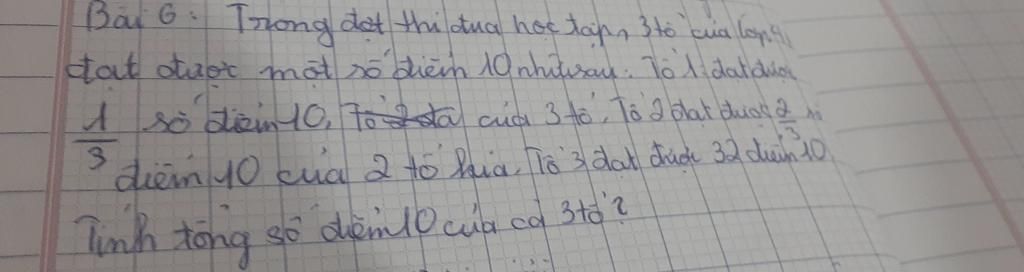 Bài 6: Trong đợt thi đua học tập, 3 tổ của lớp
đạt được một số điểm 10 như sau: Tổ 1 đạt được
1/3 số điểm 10 của 3 tổ. Tổ 2 đạt được 2/3 số
điểm 10 của 2 tổ kia. Tổ 3 đạt được 32 điểm 10.
Tính tổng số điểm 10 của cả 3 tổ?